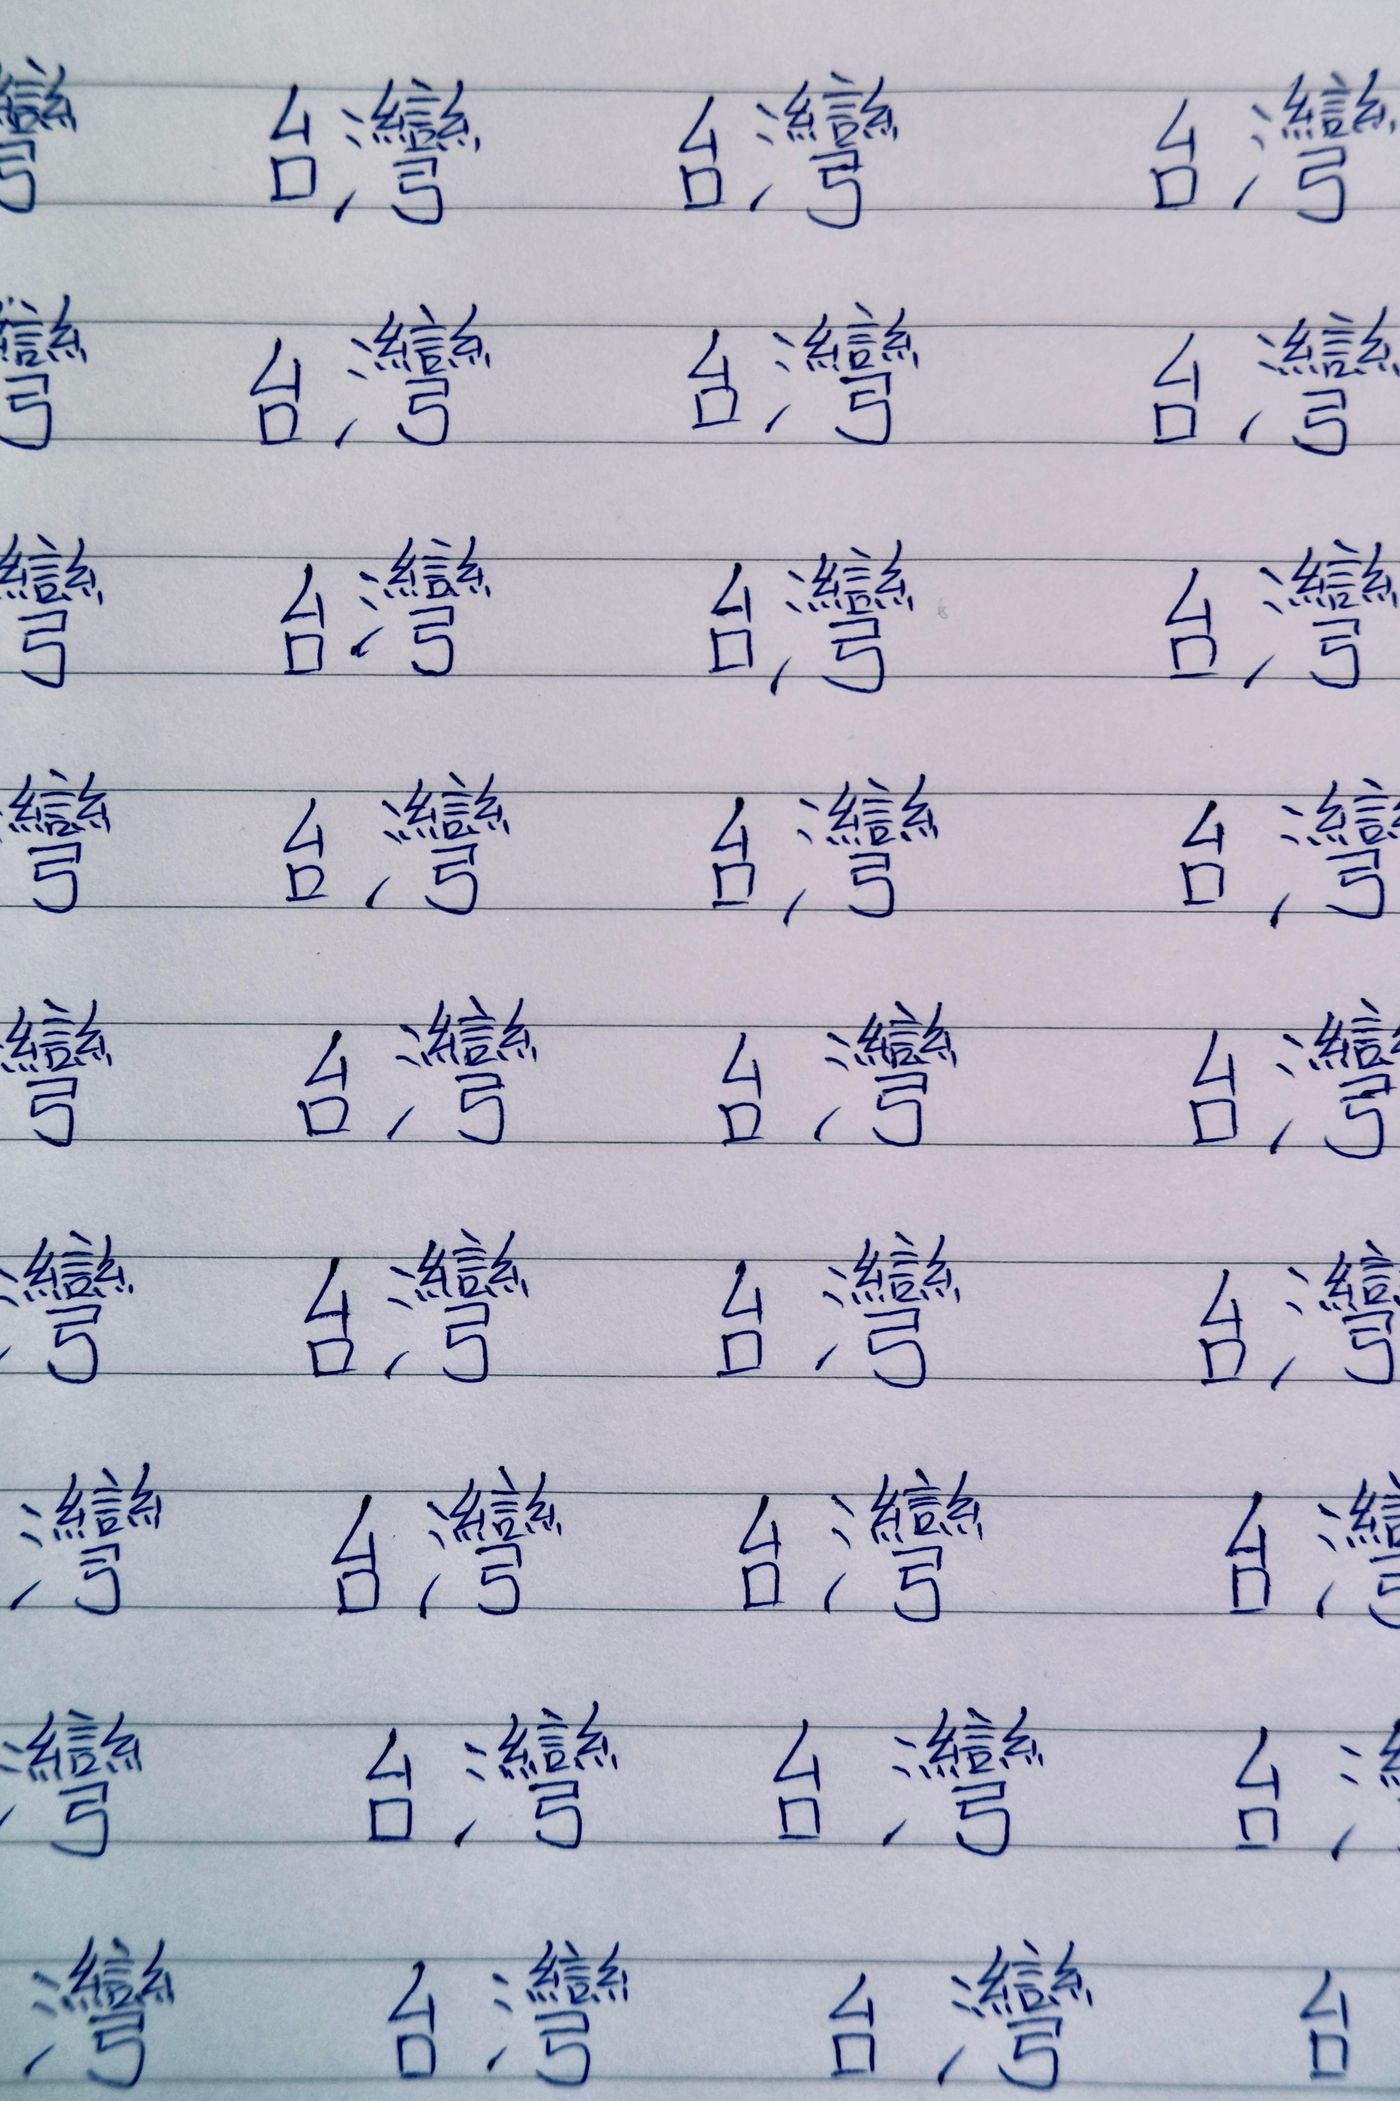 灣 台灣 台灣 台灣
灣 台灣 台灣 台灣
灣 台灣 台灣 台灣
灣 台灣 台灣 台灣
灣 台灣 台灣 台灣
灣 台灣 台灣 台灣
灣 台灣 台灣 台灣
灣 台灣 台灣 台灣
灣 台灣 台灣 台